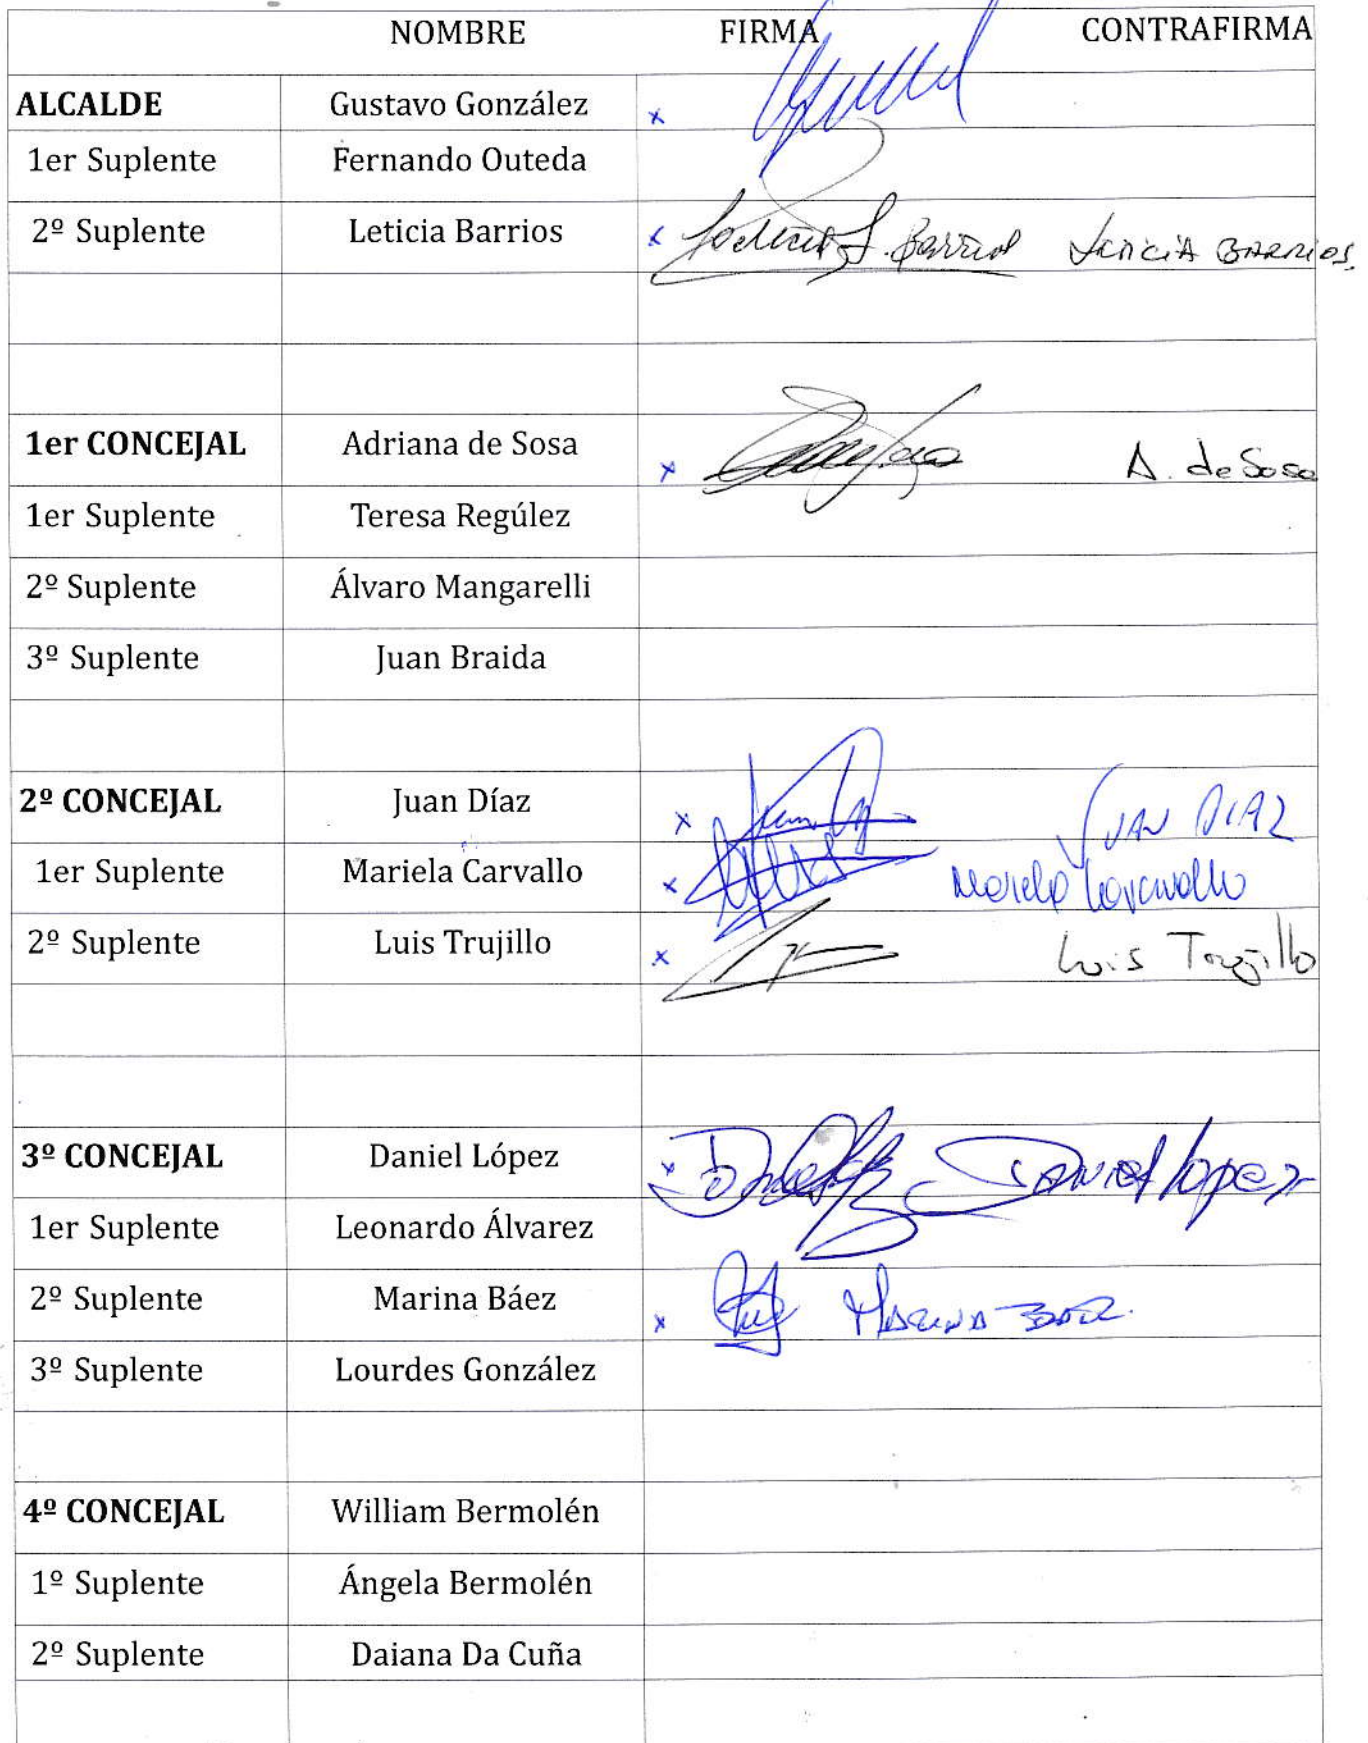 NOMBRE FIRMA CONTRAFIRMA
ALCALDE Gustavo González x
1er Suplente Fernando Outeda
2º Suplente Leticia Barrios x L. Barrios Leticia BARRIOS.
1er CONCEJAL Adriana de Sosa x A. de Sosa
1er Suplente Teresa Regúlez
2º Suplente Álvaro Mangarelli
3º Suplente Juan Braida
2º CONCEJAL Juan Díaz x JUAN DIAZ
1er Suplente Mariela Carvallo x Mariela Carvallo
2º Suplente Luis Trujillo x Luis Trujillo
3º CONCEJAL Daniel López x Daniel Lopez
1er Suplente Leonardo Álvarez
2º Suplente Marina Báez x MARINA BAEZ.
3º Suplente Lourdes González
4º CONCEJAL William Bermolén
1º Suplente Ángela Bermolén
2º Suplente Daiana Da Cuña